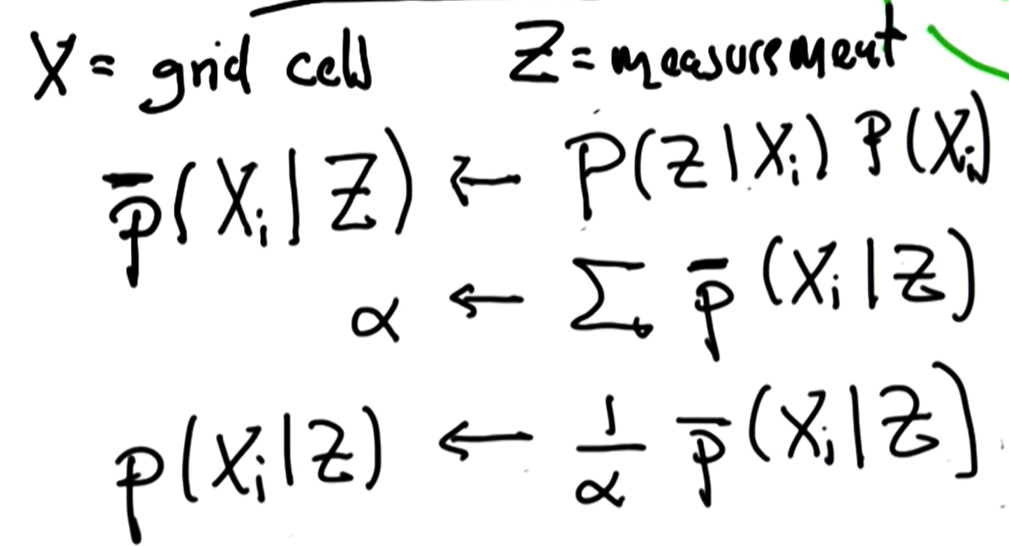 X = grid cell Z = measurement
p̄(Xᵢ|Z) ← P(Z|Xᵢ) P(Xᵢ)
α ← Σ p̄(Xᵢ|Z)
p(Xᵢ|Z) ← 1/α p̄(Xᵢ|Z)